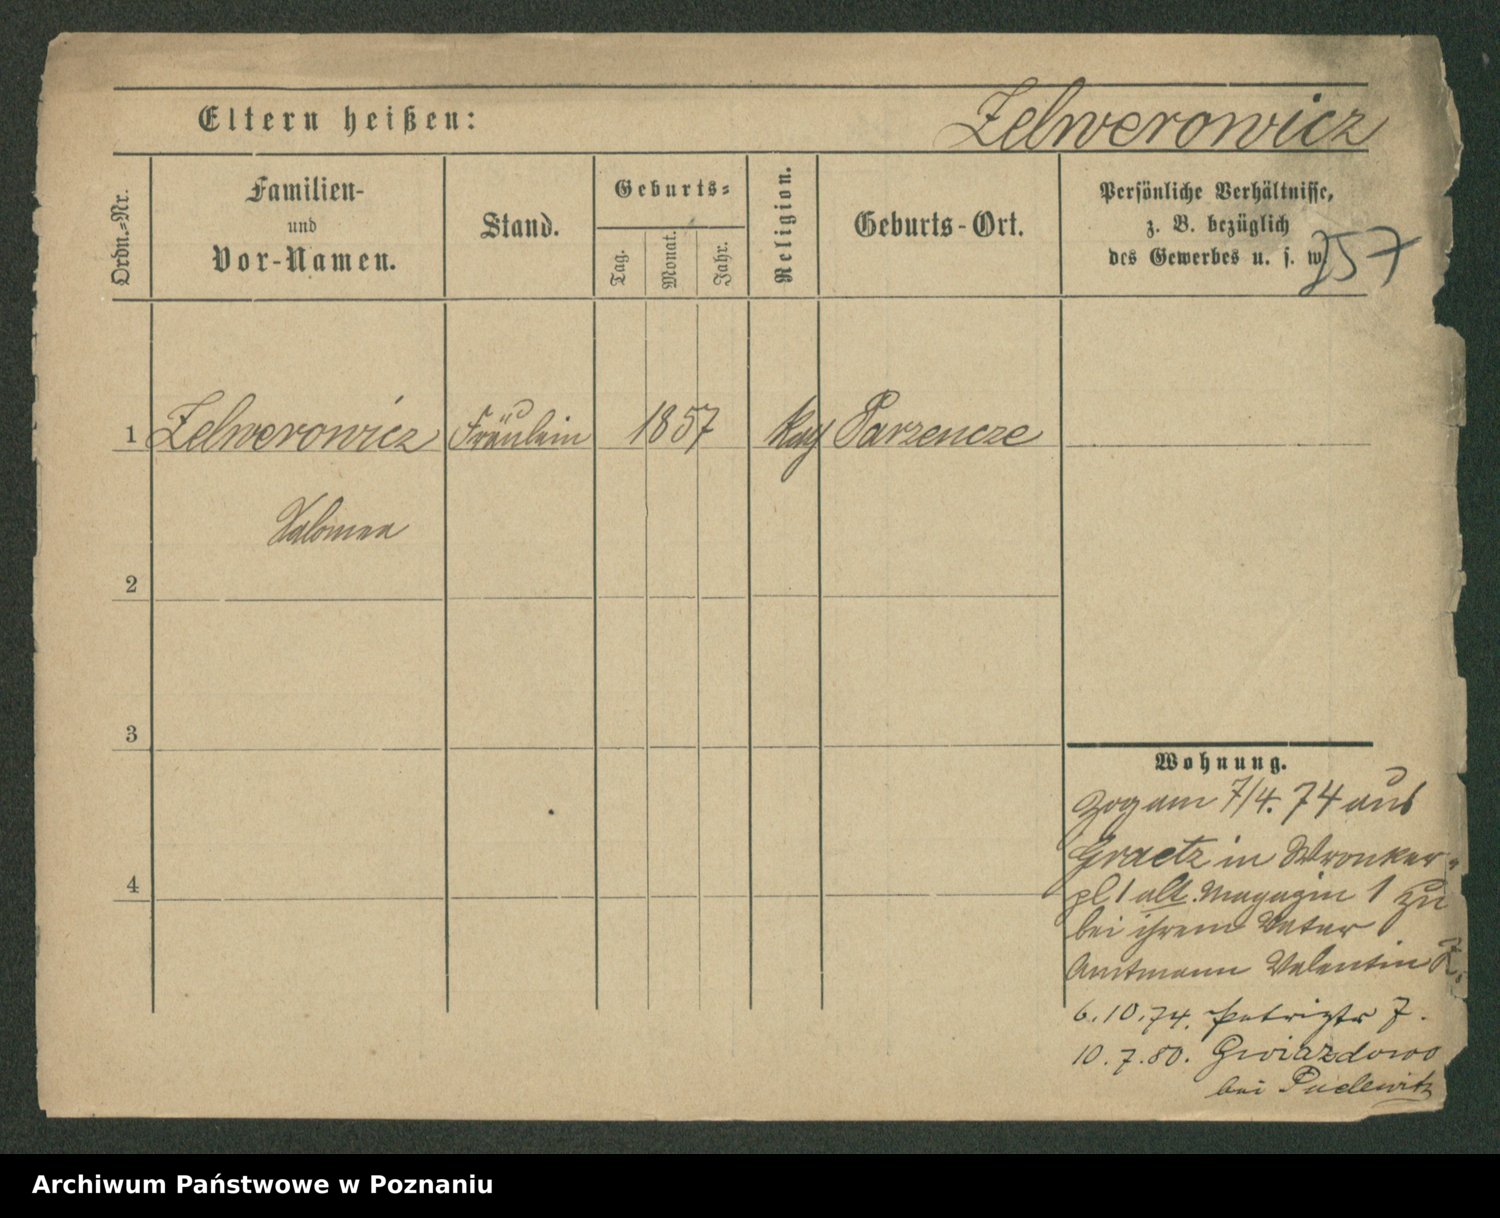 Eltern heißen:
Zelwerowicz
Ordn.=Nr.
Familien-
und
Vor-Namen.
Stand.
Geburts=
Tag.
Monat.
Jahr.
Religion.
Geburts-Ort.
Persönliche Verhältnisse,
z. B. bezüglich
des Gewerbes u. s. w.
957
1 Zelwerowicz Fräulein 1857 kath Parzencze
Salomea
2
3
4
Wohnung.
Zog am 7/4. 74 aus
Graetz in Wronker-
pl 1 alt. Magazin 1 zu
bei ihrem Vater
Amtmann Valentin Z.
6.10.74. Petristr 7.
10.7.80. Gwiazdowo
bei Pudewitz
Archiwum Państwowe w Poznaniu